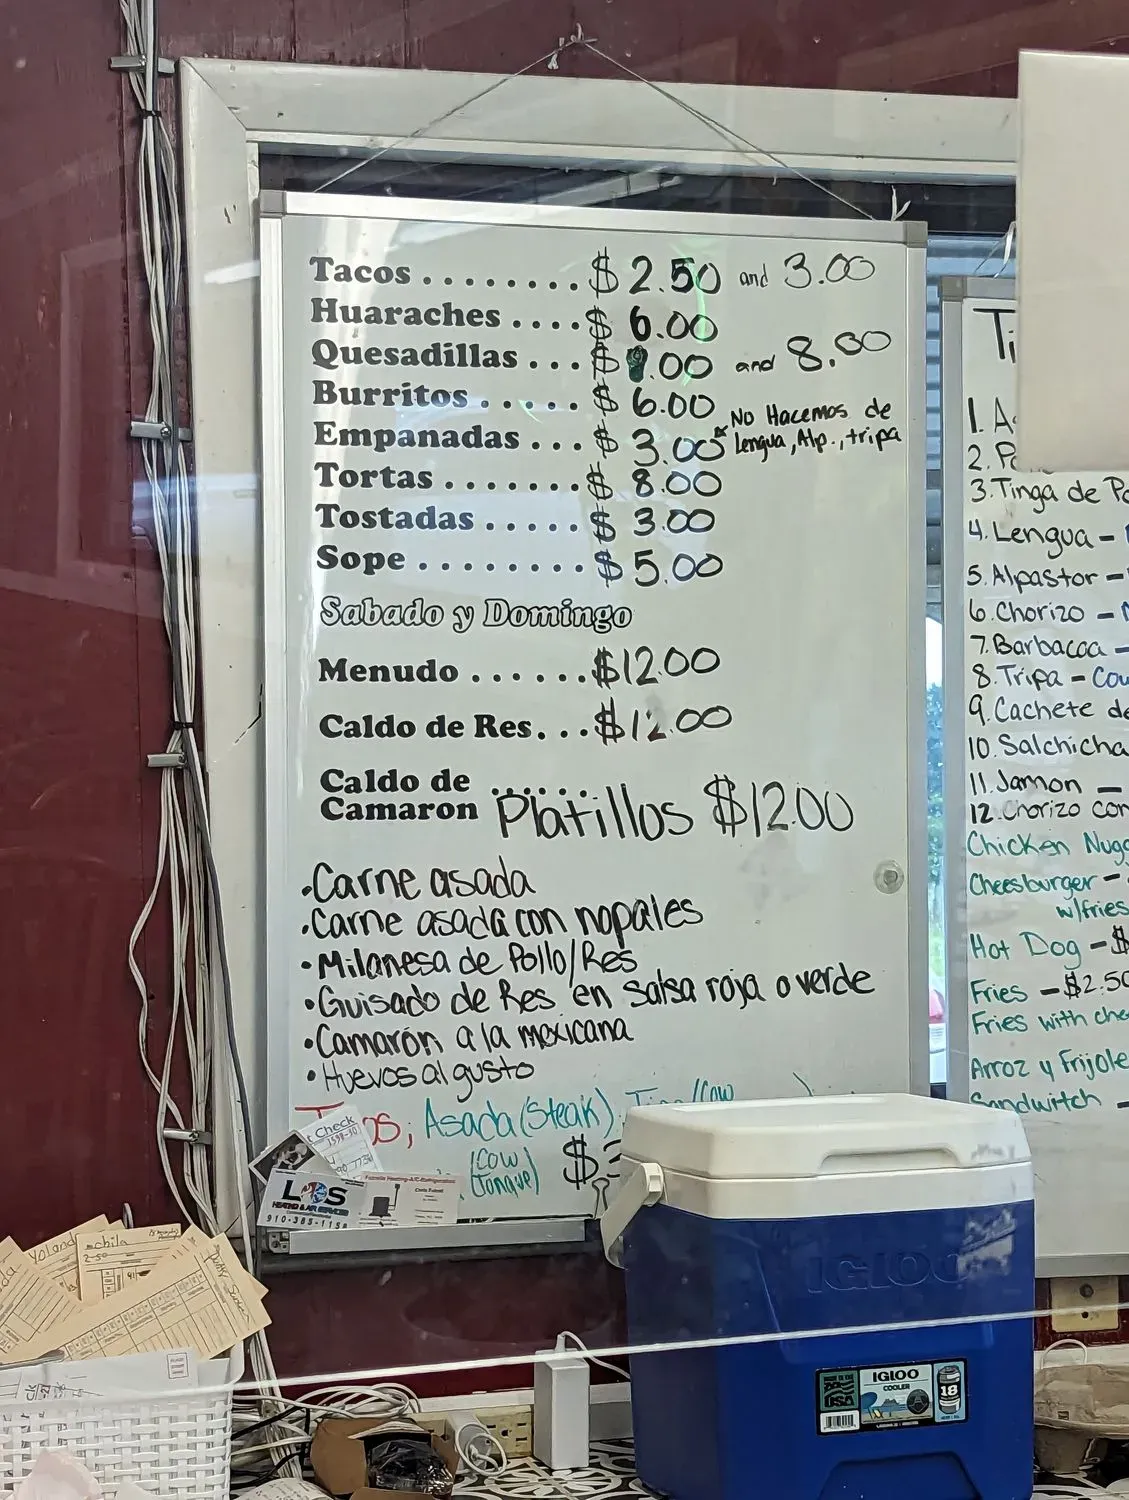 Tacos ........ $ 2.50 and 3.00
Huaraches .... $ 6.00
Quesadillas ... $ .00 and 8.00
Burritos ..... $ 6.00
Empanadas ... $ 3.00
No Hacemos de
Lengua, Alp., tripa
Tortas ....... $ 8.00
Tostadas ..... $ 3.00
Sope ........ $ 5.00
Sabado y Domingo
Menudo ...... $12.00
Caldo de Res... $12.00
Caldo de
Camaron ...... Platillos $12.00
•Carne asada
•Carne asada con nopales
•Milanesa de Pollo/Res
•Guisado de Res en salsa roja o verde
•Camarón a la mexicana
•Huevos al gusto
Asada (Steak),
(Cow
Tongue) $
1. A
2. Po
3. Tinga de Po
4. Lengua –
5. Alpastor –
6. Chorizo –
7. Barbacoa –
8. Tripa – Cow
9. Cachete de
10. Salchicha
11. Jamon –
12. Chorizo con
Chicken Nugg
Cheesburger –
w/fries
Hot Dog – $
Fries – $2.50
Fries with che
Arroz y Frijole
Sandwitch –
Check
LOS
HEATING & AIR SERVICES
910-385-1158
IGLOO
IGLOO
COOLER
USA
18